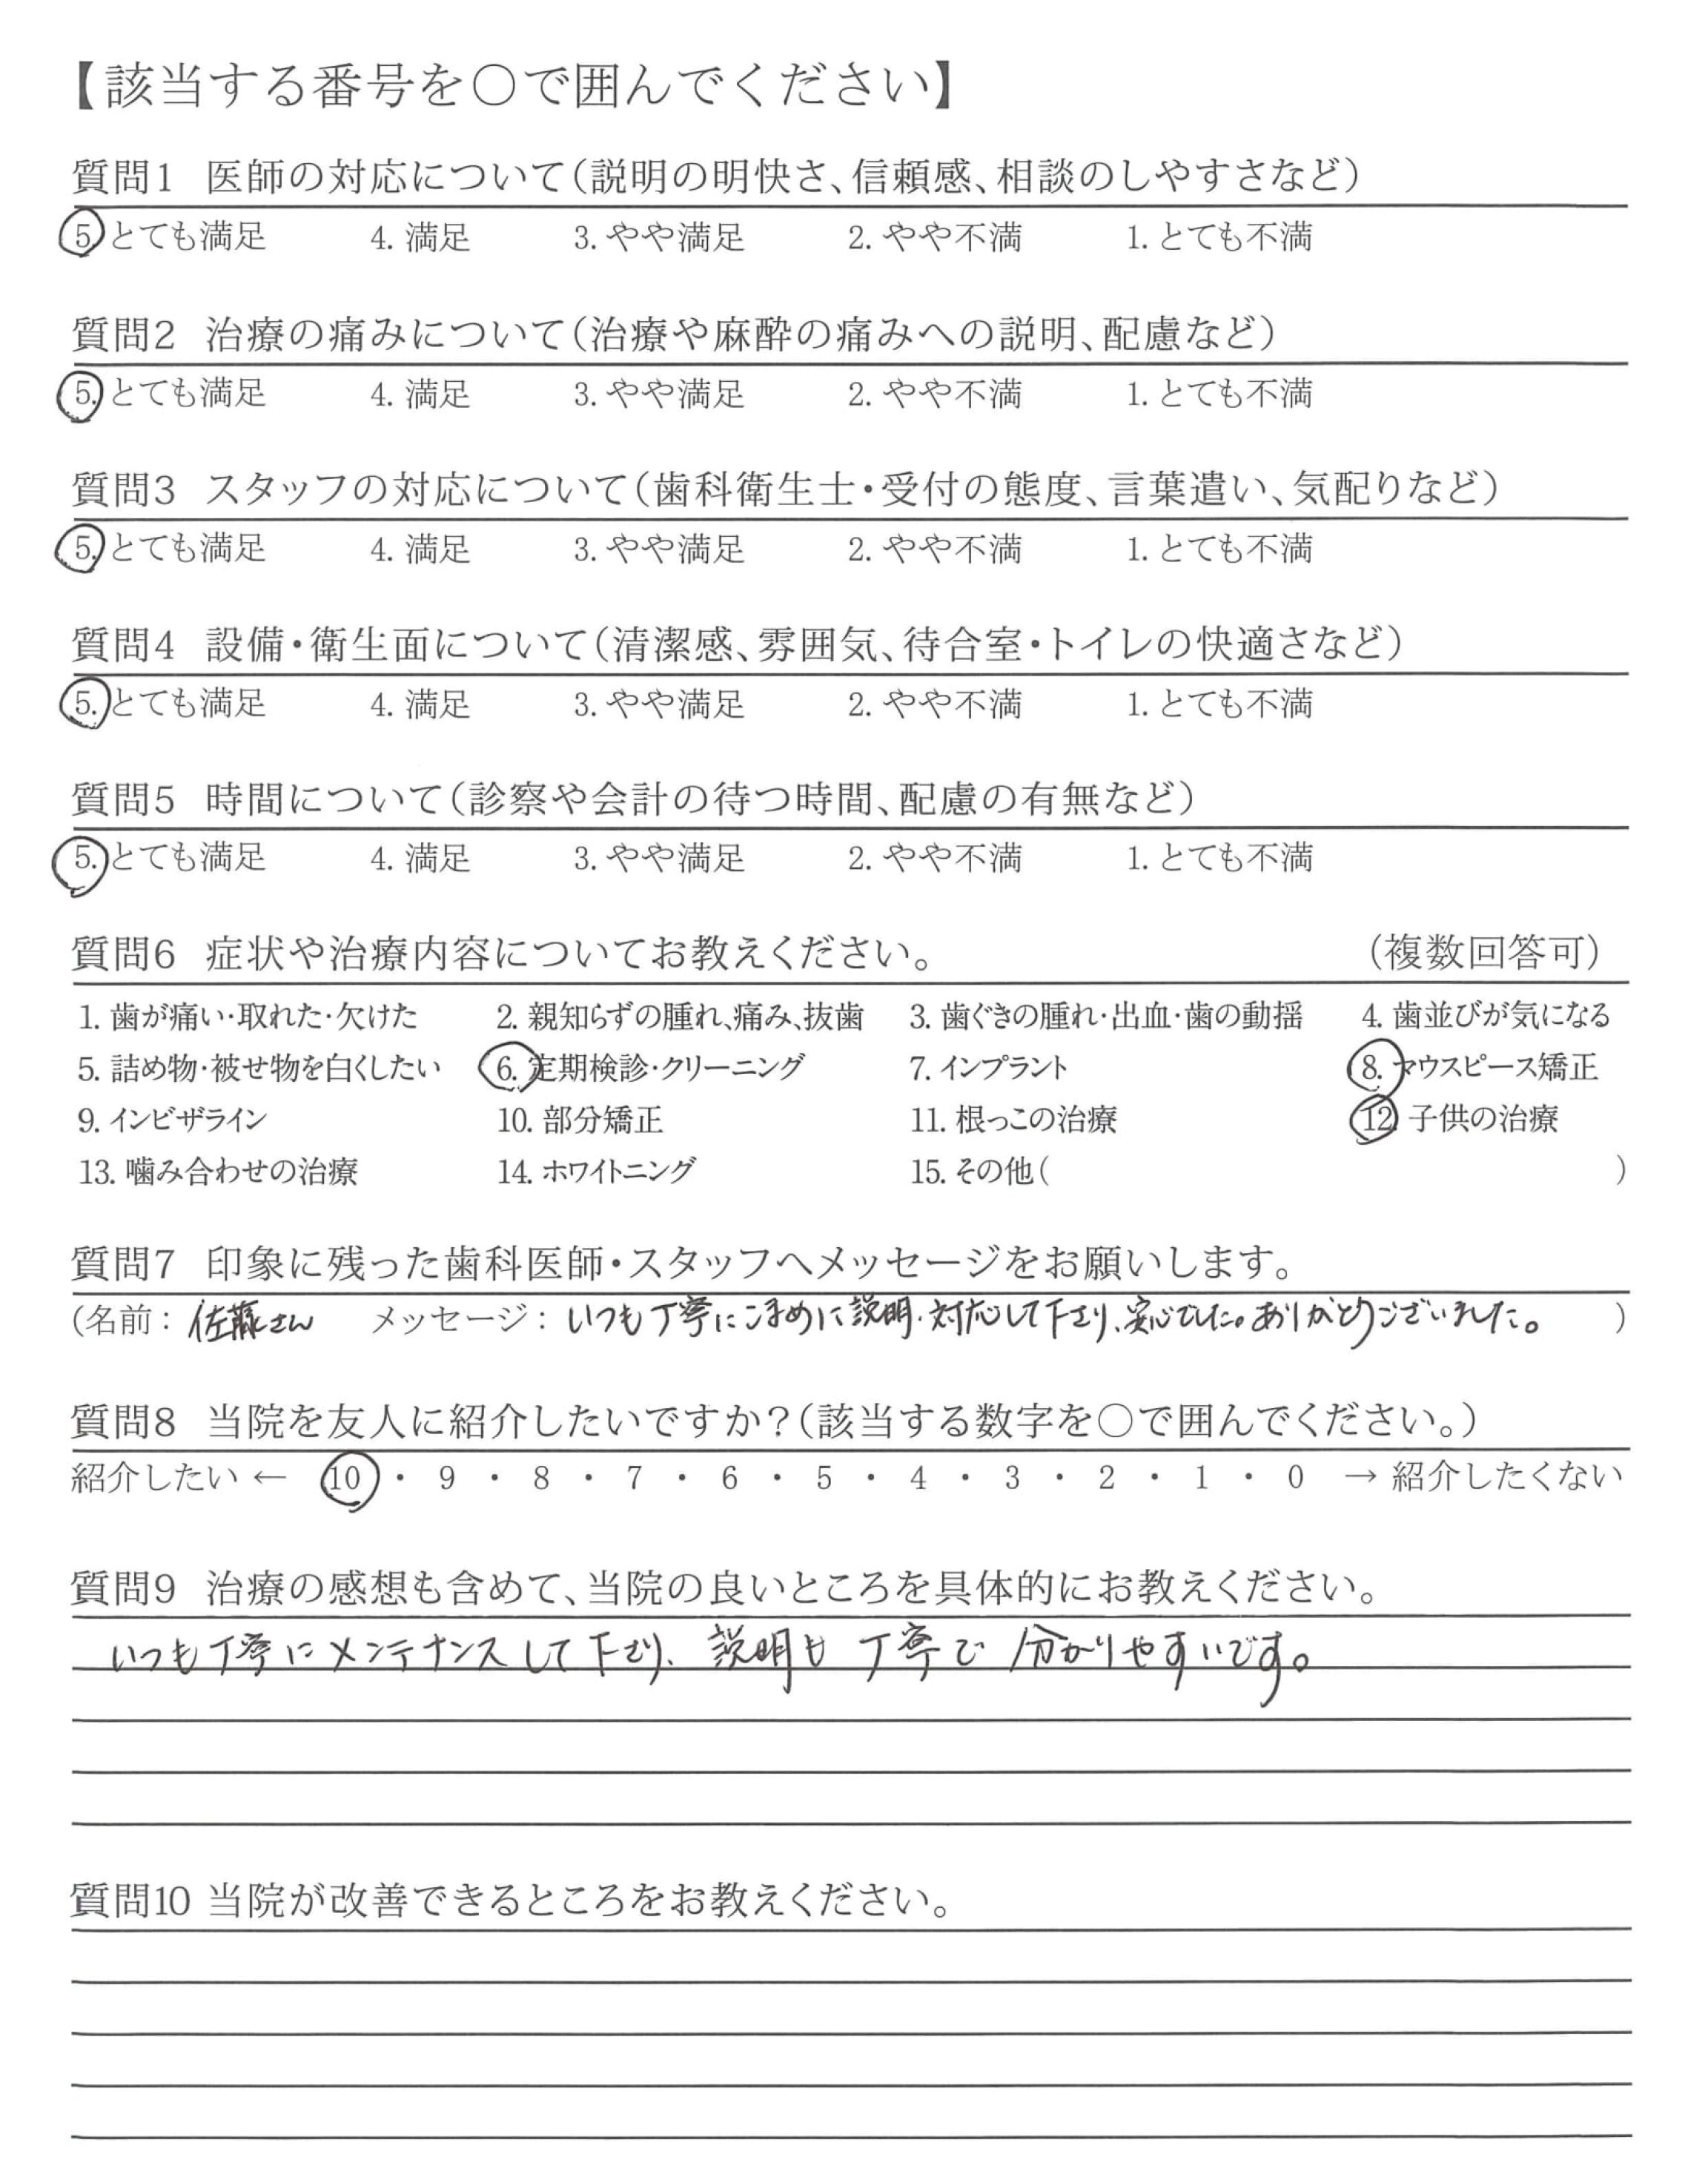 【該当する番号を○で囲んでください】
質問1 医師の対応について(説明の明快さ、信頼感、相談のしやすさなど)
5. とても満足 4. 満足 3. やや満足 2. やや不満 1. とても不満
質問2 治療の痛みについて(治療や麻酔の痛みへの説明、配慮など)
5. とても満足 4. 満足 3. やや満足 2. やや不満 1. とても不満
質問3 スタッフの対応について(歯科衛生士・受付の態度、言葉遣い、気配りなど)
5. とても満足 4. 満足 3. やや満足 2. やや不満 1. とても不満
質問4 設備・衛生面について(清潔感、雰囲気、待合室・トイレの快適さなど)
5. とても満足 4. 満足 3. やや満足 2. やや不満 1. とても不満
質問5 時間について(診察や会計の待つ時間、配慮の有無など)
5. とても満足 4. 満足 3. やや満足 2. やや不満 1. とても不満
質問6 症状や治療内容についてお教えください。 (複数回答可)
1. 歯が痛い・取れた・欠けた 2. 親知らずの腫れ、痛み、抜歯 3. 歯ぐきの腫れ・出血・歯の動揺 4. 歯並びが気になる
5. 詰め物・被せ物を白くしたい 6. 定期検診・クリーニング 7. インプラント 8. マウスピース矯正
9. インビザライン 10. 部分矯正 11. 根っこの治療 12. 子供の治療
13. 噛み合わせの治療 14. ホワイトニング 15. その他( )
質問7 印象に残った歯科医師・スタッフへメッセージをお願いします。
(名前: 佐藤さん メッセージ: いつも丁寧にこまめに説明・対応して下さり、安心でした。ありがとうございました。 )
質問8 当院を友人に紹介したいですか?(該当する数字を○で囲んでください。)
紹介したい ← 10 ・ 9 ・ 8 ・ 7 ・ 6 ・ 5 ・ 4 ・ 3 ・ 2 ・ 1 ・ 0 → 紹介したくない
質問9 治療の感想も含めて、当院の良いところを具体的にお教えください。
いつも丁寧にメンテナンスして下さり、説明も丁寧で分かりやすいです。
質問10 当院が改善できるところをお教えください。